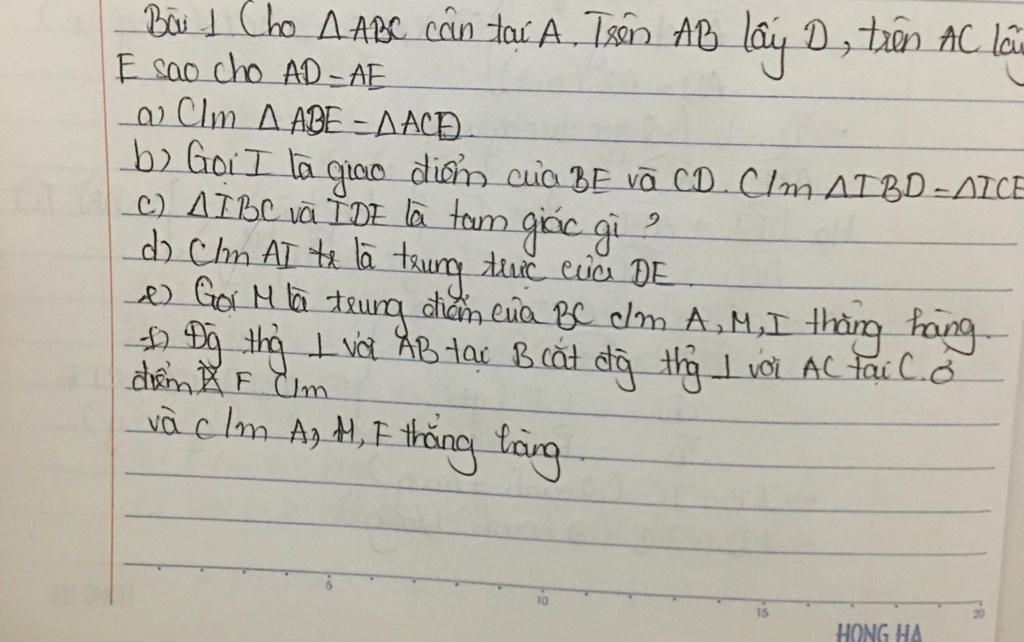 Bài 1 Cho ΔABC cân tại A. Trên AB lấy D, trên AC lấy
E sao cho AD=AE
a) C/m ΔABE=ΔACD.
b) Gọi I là giao điểm của BE và CD. C/m ΔIBD=ΔICE
c) ΔIBC và IDE là tam giác gì?
d) C/m AI là trung trực của DE.
e) Gọi M là trung điểm của BC c/m A, M, I thẳng hàng.
f) Đg thg ⊥ với AB tại B cắt đg thg ⊥ với AC tại C. ở
điểm F C/m
và c/m A, M, F thẳng hàng.
5 10 15 20
HONG HA